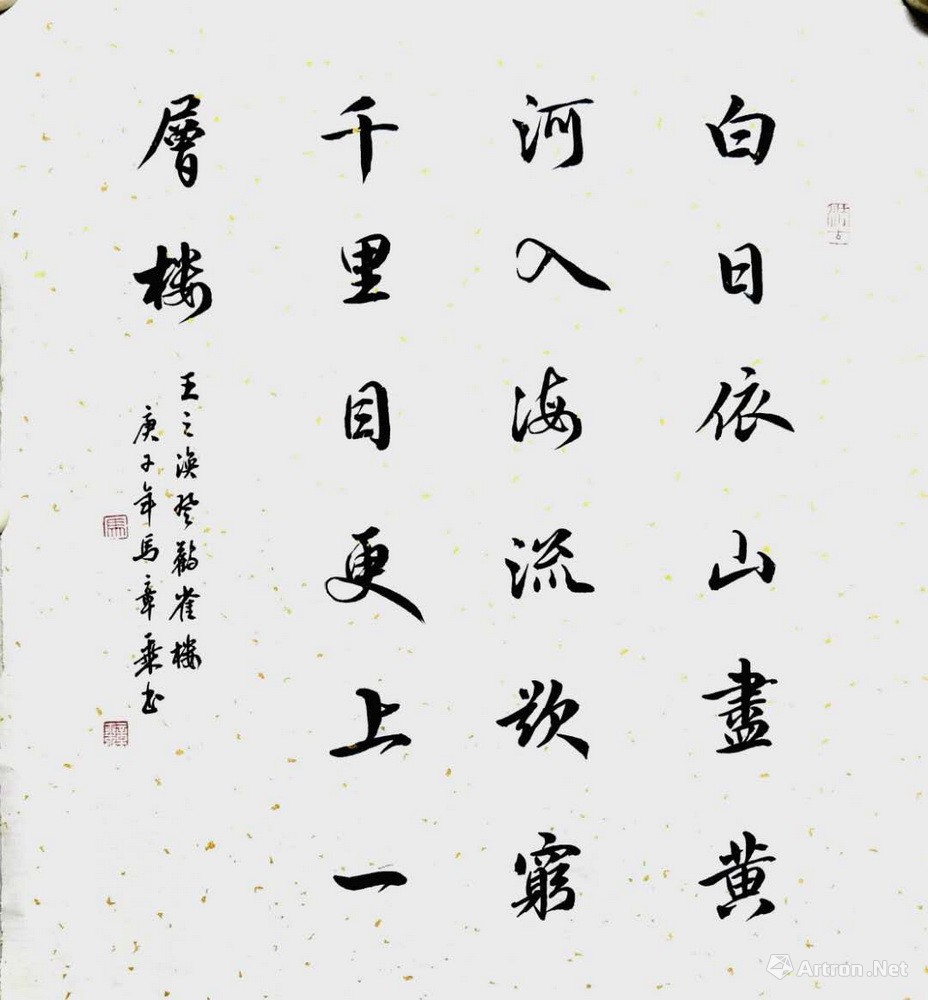 白日依山盡黄
河入海流欲窮
千里目更上一
層楼
王之渙登鸛雀楼
庚子年馬章乘书
馬
Artron.Net